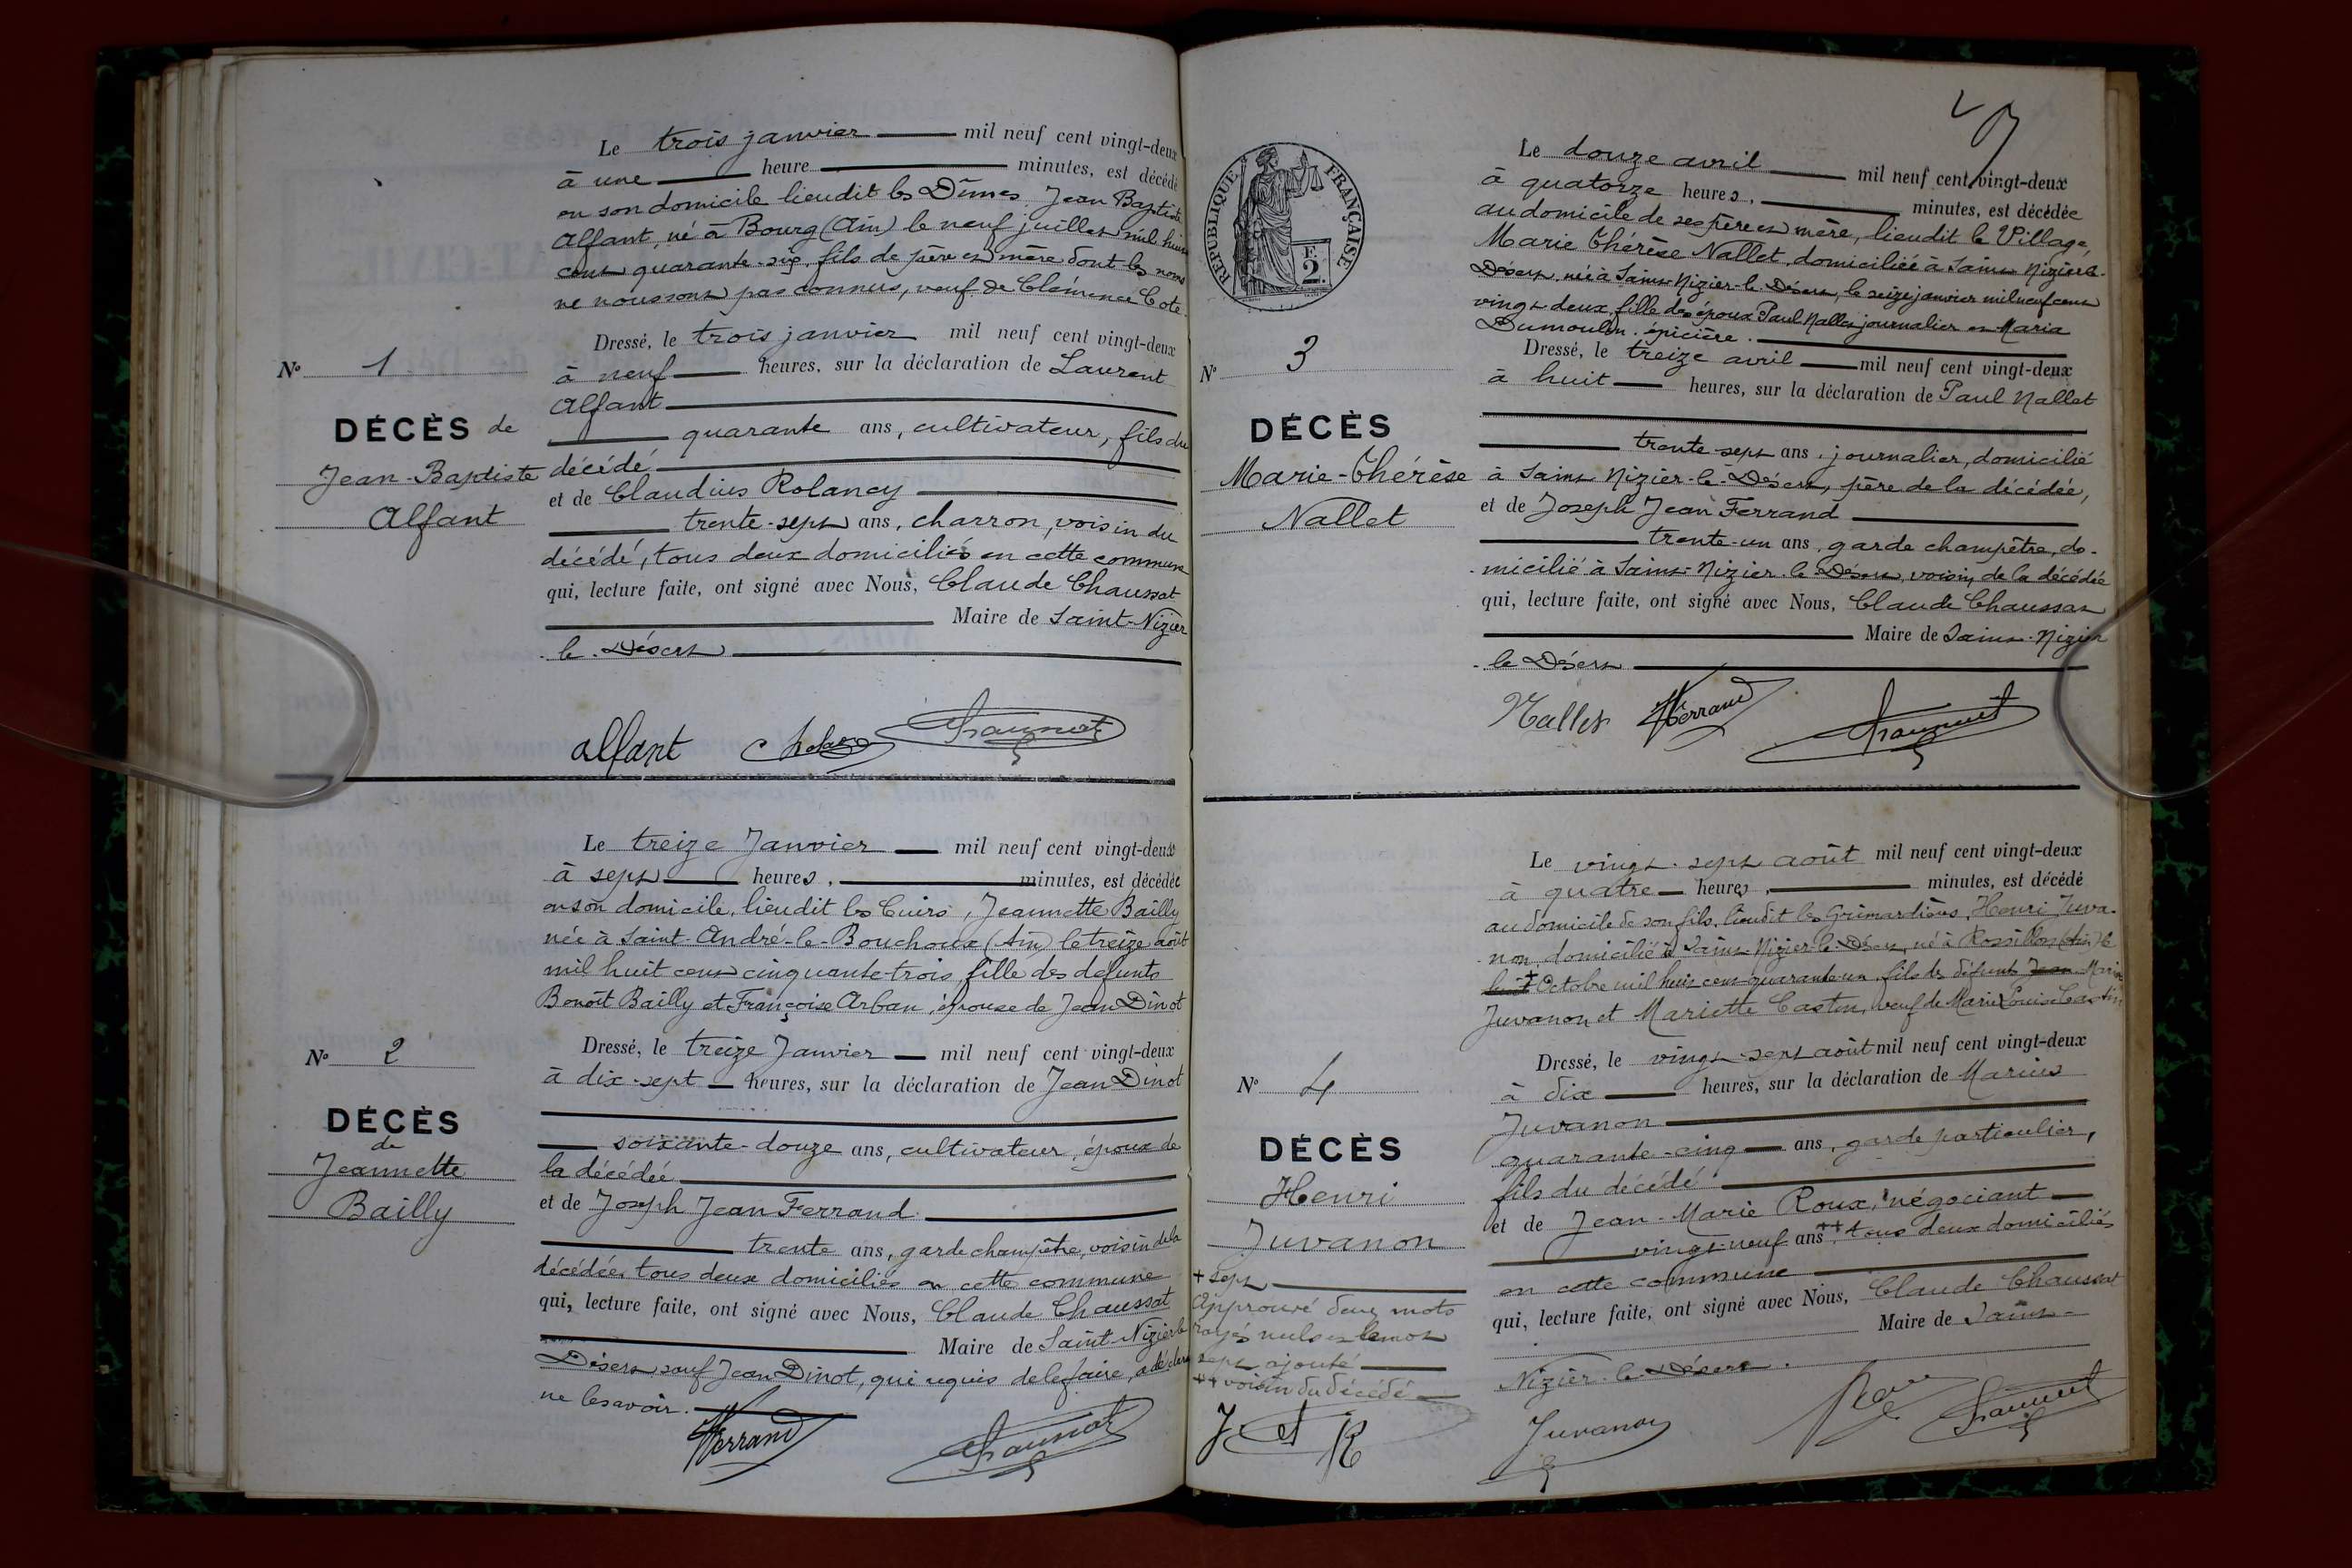 Le trois janvier mil neuf cent vingt-deux
à une heure minutes, est décédé
en son domicile lieudit les Dîmes, Jean Baptiste
Alfant, né à Bourg (Ain) le neuf juillet mil huit
cent quarante-six, fils de père et mère dont les noms
ne nous sont pas connus, veuf de Clémence Cote.
Dressé, le trois janvier mil neuf cent vingt-deux
à neuf heures, sur la déclaration de Laurent
Alfant
quarante ans, cultivateur, fils du
décédé
et de Claudius Rolancy
trente-sept ans, charron, voisin du
décédé, tous deux domiciliés en cette commune
qui, lecture faite, ont signé avec Nous, Claude Chaussat
Maire de Saint-Nizier
-le-Désert
No 1
DÉCÈS de
Jean-Baptiste
Alfant
alfant Chaussat
Le treize Janvier mil neuf cent vingt-deux
à sept heures, minutes, est décédée
en son domicile, lieudit les Cuirs, Jeannette Bailly
née à Saint-André-le-Bouchoux (Ain) le treize août
mil huit cent cinquante-trois, fille des defunts
Benoît Bailly et Françoise Arban, épouse de Jean Dinot
Dressé, le treize Janvier mil neuf cent vingt-deux
à dix-sept heures, sur la déclaration de Jean Dinot
soixante-douze ans, cultivateur, époux de
la décédée
et de Joseph Jean Ferrand
trente ans, garde champêtre, voisin de la
décédée, tous deux domiciliés en cette commune
qui, lecture faite, ont signé avec Nous, Claude Chaussat
Maire de Saint-Nizier le
Désert sauf Jean Dinot, qui requis de le faire, a déclaré
ne le savoir.
No 2
DÉCÈS
de
Jeannette
Bailly
Ferrand Chaussat
RÉPUBLIQUE FRANÇAISE
E
2.
Le douze avril mil neuf cent vingt-deux
à quatorze heures, minutes, est décédée
au domicile de ses père et mère, lieudit le Village,
Marie Thérèse Nallet, domiciliée à Saint Nizier-le-
Désert, née à Saint Nizier-le-Désert, le seize janvier mil neuf cent
vingt-deux, fille des époux Paul Nallet journalier et Maria
Dumoulin, épicière.
Dressé, le treize avril mil neuf cent vingt-deux
à huit heures, sur la déclaration de Paul Nallet
trente-sept ans, journalier, domicilié
à Saint Nizier-le-Désert, père de la décédée,
et de Joseph Jean Ferrand
trente-un ans, garde champêtre, do-
-micilié à Saint-Nizier-le-Désert, voisin de la décédée
qui, lecture faite, ont signé avec Nous, Claude Chaussat
Maire de Saint-Nizier
-le Désert
No 3
DÉCÈS
Marie-Thérèse
Nallet
Nallet Ferrand Chaussat
Le vingt-sept août mil neuf cent vingt-deux
à quatre heures, minutes, est décédé
au domicile de son fils, lieudit les Grimardières, Henri Juva-
-non, domicilié à Saint-Nizier-le-Désert, né à Rossillon (Ain) le
+ Octobre mil huit cent quarante-un, fils de défunts Jean Marin
Juvanon et Mariette Castin, veuf de Marie Louise Castin
Dressé, le vingt-sept août mil neuf cent vingt-deux
à dix heures, sur la déclaration de Marius
Juvanon
quarante-cinq ans, garde particulier,
fils du décédé
et de Jean-Marie Roux, négociant
vingt-neuf ans ++, tous deux domiciliés
en cette commune
qui, lecture faite, ont signé avec Nous, Claude Chaussat
Maire de Saint-
Nizier-le-Désert.
No 4
DÉCÈS
Henri
Juvanon
+ sept
Approuvé deux mots
rayés nuls et le mot
sept ajouté
++ voisin du décédé
J et R
Juvanon Chaussat